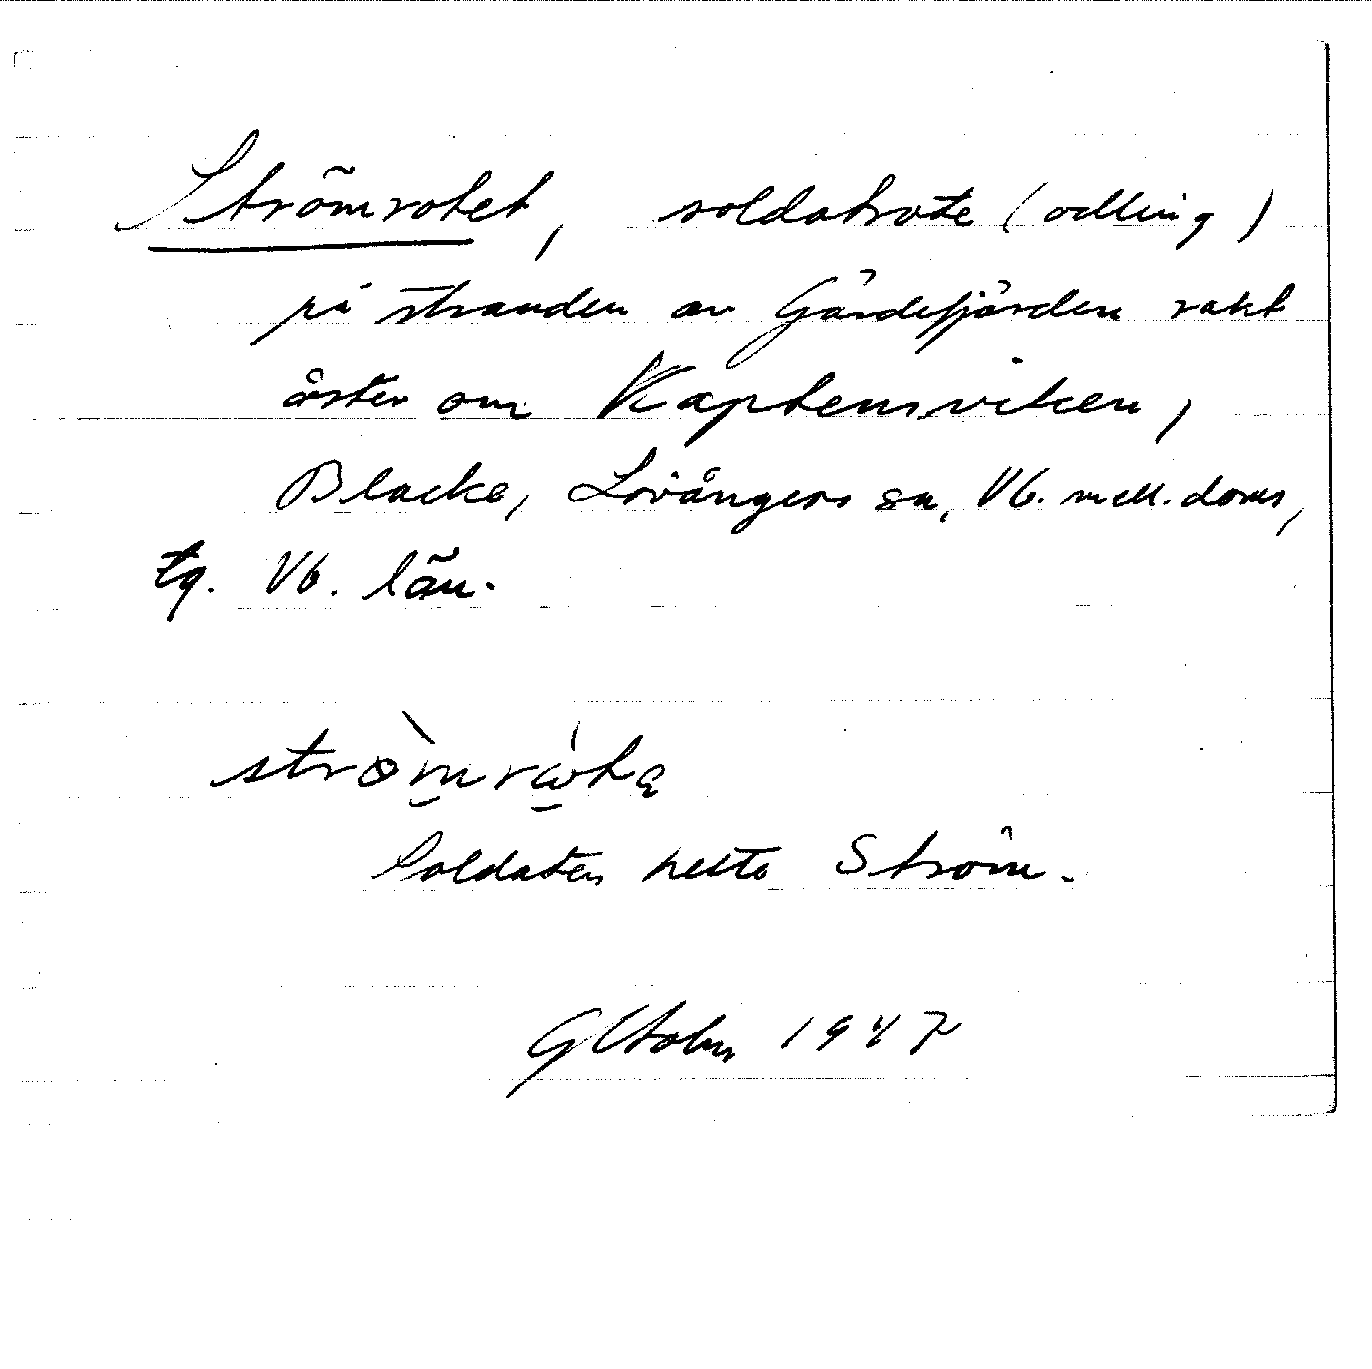 Strömrotet, soldatrote (odling)
på stranden av Gärdefjärden rakt
öster om Kaptensviken,
Blacke, Lövångers sn, Vb. mell. doms,
tg. Vb. län.
Soldaten hette Ström.
1947